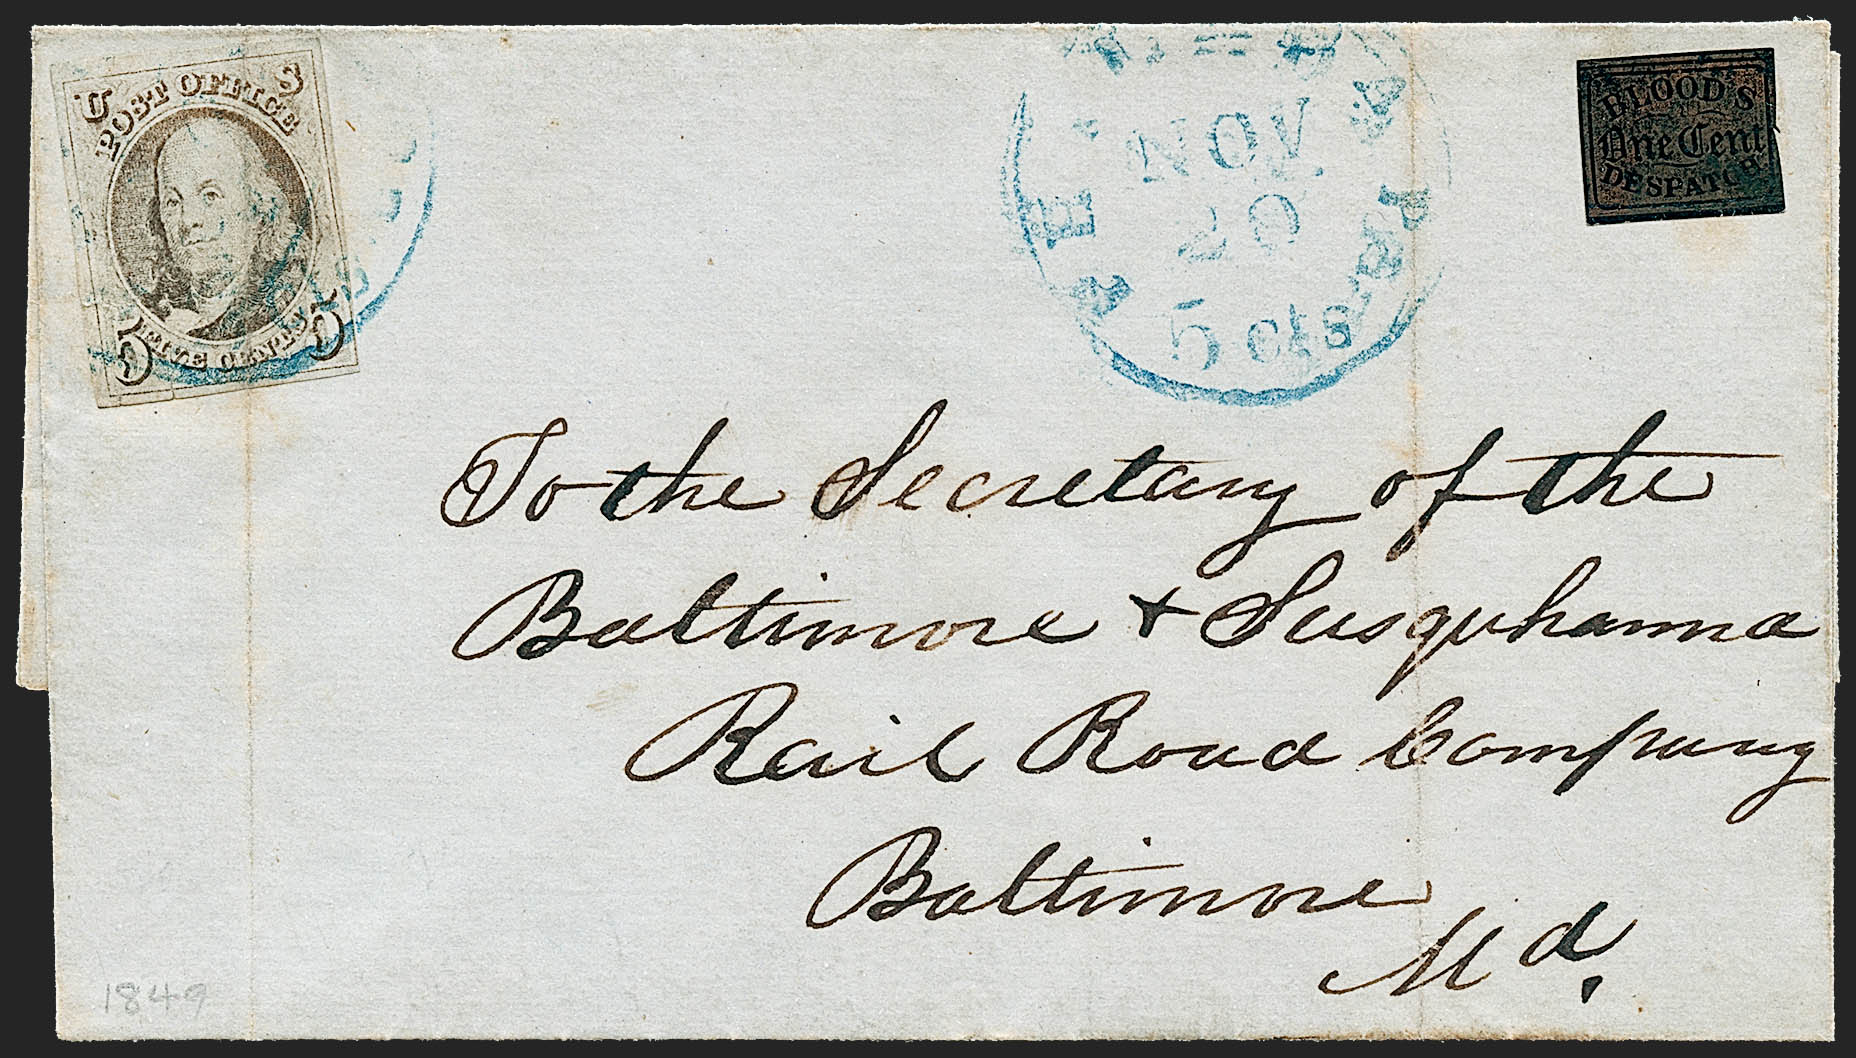 U S
POST OFFICE
5 FIVE CENTS 5
NOV
20
5 cts
Pa.
BLOOD'S
One Cent
DESPATCH
To the Secretary of the
Baltimore + Susquhanna
Rail Road Company
Baltimore
Md.
1849